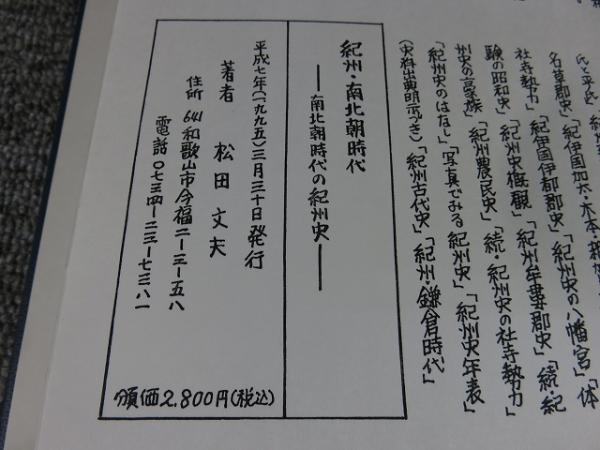 氏と平氏
名草郡史」「紀伊国加太・木本・雑賀
社寺勢力」「紀伊国伊都郡史」「紀州史の八幡宮」「体
験の昭和史」「紀州史概観」「紀州牟婁郡史」「続・紀
州史の豪族」「紀州農民史」「続・紀州史の社寺勢力」
「紀州史のはなし」「写真でみる紀州史」「紀州史年表」
(史料出典明示つき)「紀州古代史」「紀州・鎌倉時代」
紀州・南北朝時代
――南北朝時代の紀州史――
平成七年(一九九五)三月三十日発行
著者 松田文夫
住所 641 和歌山市今福二ー三ー五八
電話〇七三四ー二三ー七三八一
頒価2,800円(税込)